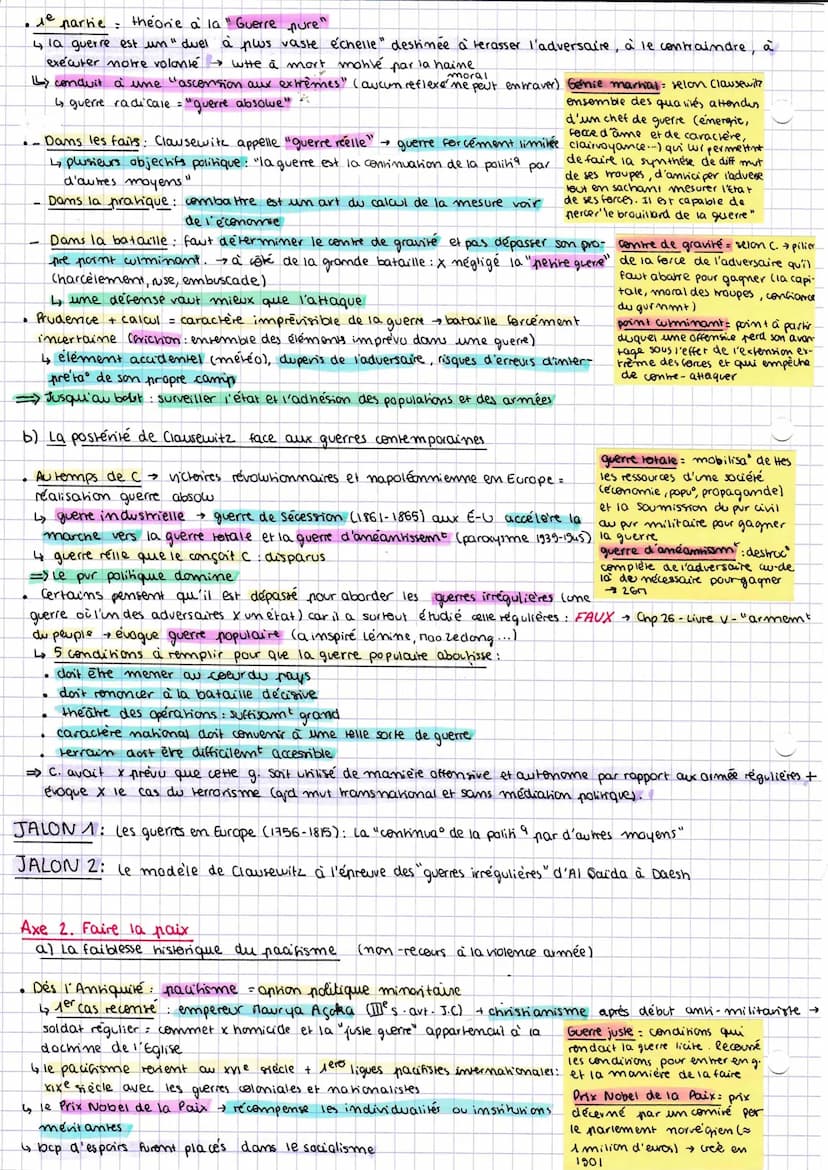 • 1e partie = théorie à la "Guerre pure"
↳ la guerre est un "duel à plus vaste échelle" destinée à terasser l'adversaire, à le contraindre, à
exécuter notre volonté → lutte à mort motivé par la haine
↳ conduit à une "ascension aux extrêmes" (aucun reflexe moral ne peut entraver)
↳ guerre radicale = "guerre absolue"
Génie martial = selon Clausewitz
ensemble des qualités attendus
d'un chef de guerre (énergie,
force d'âme et de caractère,
clairvoyance...) qui lui permettent
de faire la synthèse de diff mvt
de ses troupes, d'anticiper l'adverse
tout en sachant mesurer l'état
de ses forces. Il est capable de
percer "le brouillard de la guerre"
• - Dans les faits : Clausewitz appelle "guerre réelle" → guerre forcément limitée
↳ plusieurs objectifs politique : "la guerre est la continuation de la politiq par
d'autres moyens"
- Dans la pratique : combattre est un art du calcul de la mesure voir
de l'économie
- Dans la bataille : faut déterminer le centre de gravité et pas dépasser son pro-
pre point culminant. → à côté de la grande bataille : x négligé la "petite guerre"
(harcèlement, ruse, embuscade)
↳ une défense vaut mieux que l'attaque
centre de gravité = selon C. → pilier
de la force de l'adversaire qu'il
faut abatre pour gagner (la capi-
tale, moral des troupes, confiance
du gvrnmt)
point culminant = point à partir
duquel une offensive perd son avan-
tage sous l'effet de l'extension ex-
trême des forces et qui empêche
de contre-attaquer
• Prudence + calcul = caractère imprévisible de la guerre → bataille forcément
incertaine (friction : ensemble des éléments imprévu dans une guerre)
↳ élément accidentel (météo), duperis de l'adversaire, risques d'erreurs d'inter-
préta° de son propre camp
⇒ Jusqu'au bout : surveiller l'état et l'adhésion des populations et des armées
b) La postérité de Clausewitz face aux guerres contemporaines
• Au temps de C → victoires révolutionnaires et napoléonnienne en Europe =
réalisation guerre absolu
↳ guerre industrielle → guerre de sécession (1861-1865) aux É-U accélère la
marche vers la guerre totale et la guerre d'anéantissemt (paroxysme 1939-1945)
↳ guerre réelle que le conçoit C : disparus
⇒ le pvr politique domine
guerre totale = mobilisa° de ttes
les ressources d'une société
(économie, popu°, propagande)
et la soumission du pvr civil
au pvr militaire pour gagner
la guerre
guerre d'anéantissmt : destruc°
complète de l'adversaire au-de
là de nécessaire pour gagner
→ 2GM
• Certains pensent qu'il est dépassé pour aborder les guerres irrégulières (une
guerre où l'un des adversaires x un état) car il a surtout étudié celle régulières : FAUX → Chp 26 - Livre V - "armemt
du peuple → évoque guerre populaire (a inspiré Lénine, Mao Zedong...)
↳ 5 conditions à remplir pour que la guerre populaire aboutisse :
• doit être mener au coeur du pays
• doit renoncer à la bataille décisive
• théâtre des opérations : suffisamt grand
• caractère national doit convenir à une telle sorte de guerre
• terrain doit être difficilemt accessible
⇒ C. avait x prévu que cette g. soit utilisé de manière offensive et autonome par rapport aux armée régulières +
évoque x le cas du terrorisme (ajd mvt transnational et sans médiation politique).
JALON 1 : Les guerres en Europe (1756-1815) : La "continua° de la politiq par d'autres moyens"
JALON 2 : Le modèle de Clausewitz à l'épreuve des "guerres irrégulières" d'Al Qaïda à Daesh
Axe 2. Faire la paix
a) La faiblesse historique du pacifisme (non-recours à la violence armée)
• Dès l'Antiquité : pacifisme = option politique minoritaire
↳ 1er cas recensé : empereur Maurya Açoka (IIIe s. avt. J.C) + christianisme après début anti-militariste →
soldat régulier = commet x homicide et la "juste guerre" appartenait à la
doctrine de l'Église
↳ le pacifisme revient au XVIe siècle + 1eres ligues pacifistes internationales :
XIXe siècle avec les guerres coloniales et nationalistes
↳ le Prix Nobel de la Paix → récompense les individualités ou institutions
méritantes
↳ bcp d'espoirs furent placés dans le socialisme
Guerre juste = conditions qui
rendait la guerre licite. Recouvre
les conditions pour entrer en g.
et la manière de la faire
Prix Nobel de la Paix = prix
décerné par un comité par
le parlement norvégien (≈
1 million d'euros) → créé en
1901